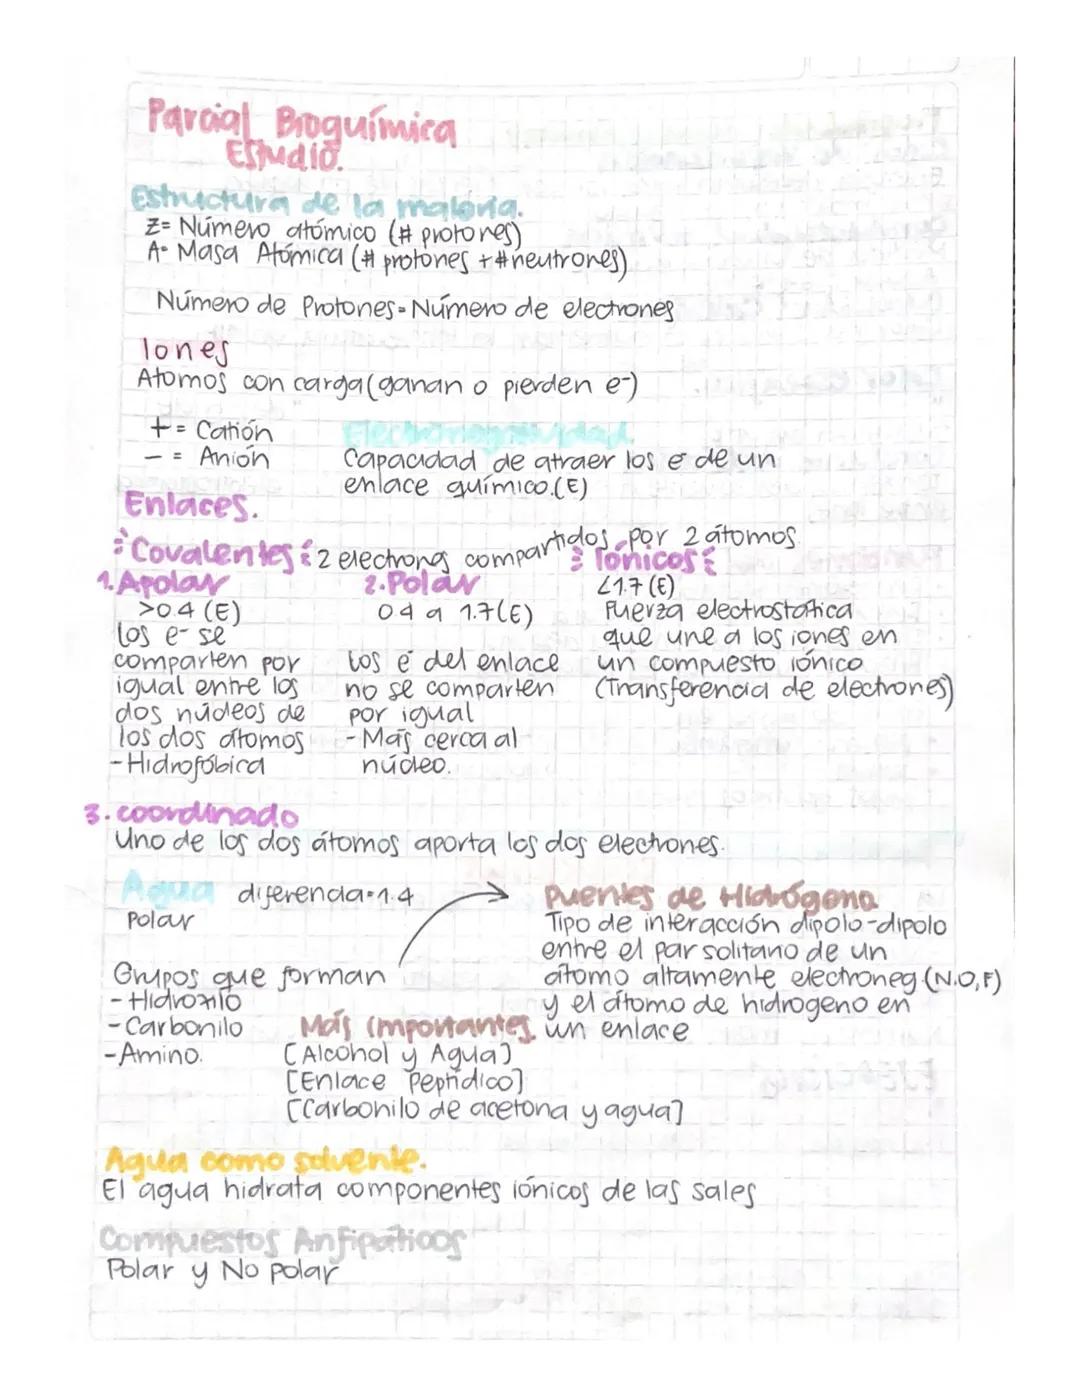 Parcial Bioquímica
Estudio.
Estructura de la materia.
Z= Número atómico (# protones)
A= Masa Atómica (# protones + #neutrones)
Número de Protones = Número de electrones
Iones
Atomos con carga (ganan o pierden e-)
+ = Catión
- = Anión
Electronegatividad.
Capacidad de atraer los e- de un
enlace químico. (E)
Enlaces.
Covalentes 2 electrons compartidos por 2 átomos
1. Apolar
>0.4 (E)
los e- se
comparten por
igual entre los
dos núcleos de
los dos átomos
-Hidrofóbica
2. Polar
0.4 a 1.7(E)
los e- del enlace
no se comparten
por igual
- Más cerca al
núcleo.
Iónicos
<1.7 (E)
Fuerza electrostática
que une a los iones en
un compuesto iónico
(Transferencia de electrones)
3. coordinado
Uno de los dos átomos aporta los dos electrones.
Agua diferencia=1.4
Polar
Grupos que forman
- Hidroxilo
- Carbonilo
- Amino.
Puentes de Hidrógeno
Tipo de interacción dipolo-dipolo
entre el par solitario de un
átomo altamente electroneg (N.O,F)
y el átomo de hidrogeno en
un enlace
Más importantes.
[Alcohol y Agua]
[Enlace Peptídico]
[Carbonilo de acetona y agua]
Agua como solvente.
El agua hidrata componentes iónicos de las sales
Compuestos Anfipáticos
Polar y No polar